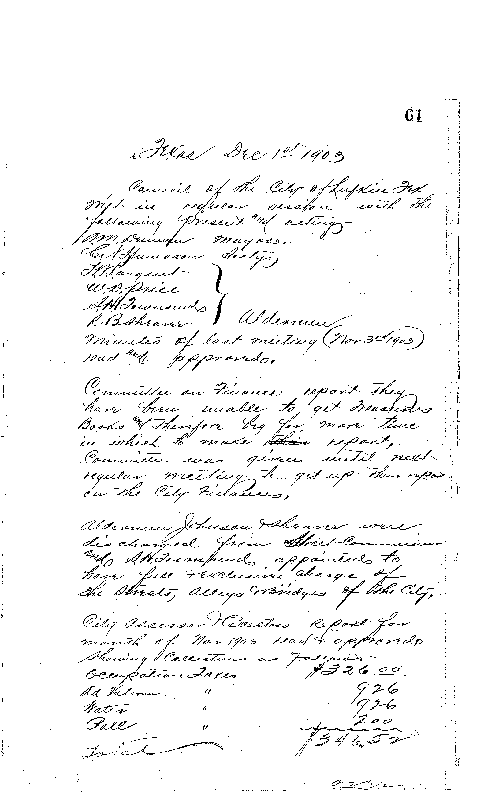 61
Texas Dec 1st 1903
Council of the City of Lufkin Tex
Met in regular session with the
following Present and acting
Mayor.
Secty
W.B. Price
S.H. Townsend
R.B. Shearer Aldermen
Minutes of last meeting (Nov 3rd 1903)
read and approved.
Committee on Finance report They
have been unable to get Treasurers
Books and Therefore beg for more time
in which to make report,
Committee was given until next
regular meeting to get up Their report
on the City Finances,
Aldermen Johnson & Shearer were
discharged from Street Committee
and S.H. Townsend appointed to
have full & exclusive charge of
the Streets, Alleys & Bridges of the City.
City Assessor & Collectors Report for
month of Nov 1903 read & approved
Showing Collections as Follows
Occupation Taxes $326.00
Ad Valorem " 926
" 926
Poll " 200
Total $346.52